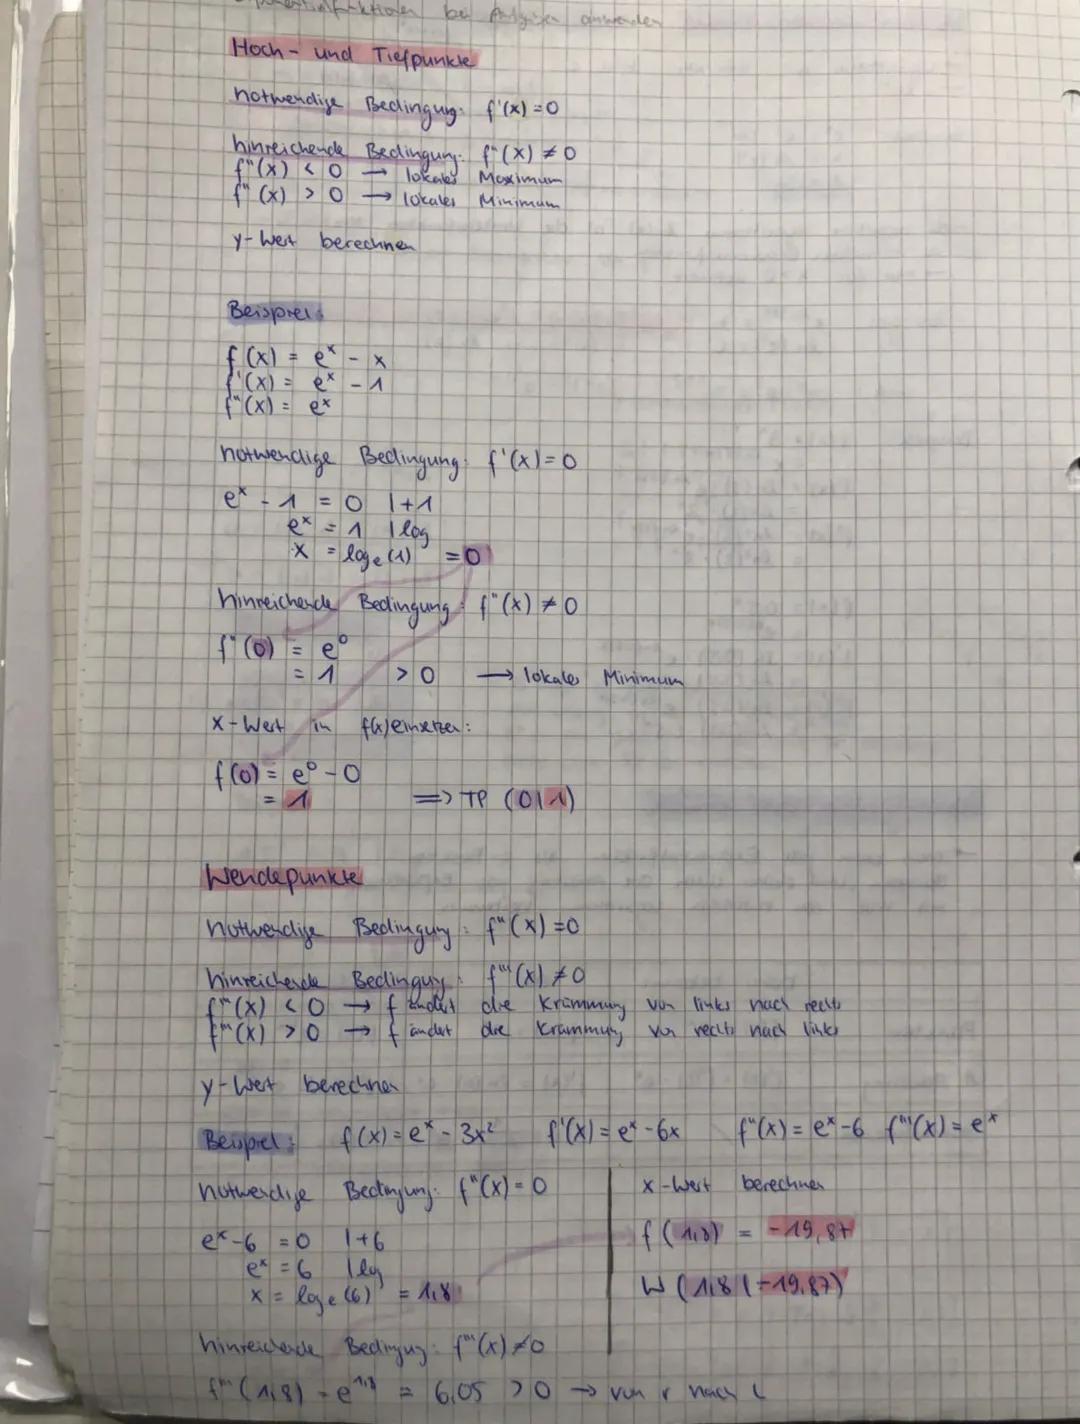 bei anwenden
Hoch- und Tiefpunkte
notwendige Bedingung: f'(x) = 0
hinreichende Bedingung: f"(x) ≠ 0
f"(x) < 0 → lokales Maximum
f"(x) > 0 → lokales Minimum
y-Wert berechnen
Beispiel:
f(x) = eˣ - x
f'(x) = eˣ - 1
f"(x) = eˣ
notwendige Bedingung: f'(x) = 0
eˣ - 1 = 0 |+1
eˣ = 1 | log
x = logₑ(1) = 0
hinreichende Bedingung: f"(x) ≠ 0
f"(0) = e⁰
= 1 > 0 → lokales Minimum
x-Wert in f(x) einsetzen:
f(0) = e⁰ - 0
= 1 => TP (0|1)
Wendepunkte
notwendige Bedingung: f"(x) = 0
hinreichende Bedingung: f'"(x) ≠ 0
f'"(x) < 0 → f ändert die Krümmung von links nach rechts
f'"(x) > 0 → f ändert die Krümmung von rechts nach links
y-Wert berechnen
Beispiel: f(x) = eˣ - 3x² f'(x) = eˣ - 6x f"(x) = eˣ - 6 f'"(x) = eˣ
notwendige Bedingung: f"(x) = 0
eˣ - 6 = 0 |+6
eˣ = 6 | log
x = logₑ(6) = 1,8
hinreichende Bedingung: f'"(x) ≠ 0
f'"(1,8) = e¹,⁸ = 6,05 > 0 → von r nach l
x-Wert berechnen
f(1,8) = -19,87
W (1,8|-19,87)